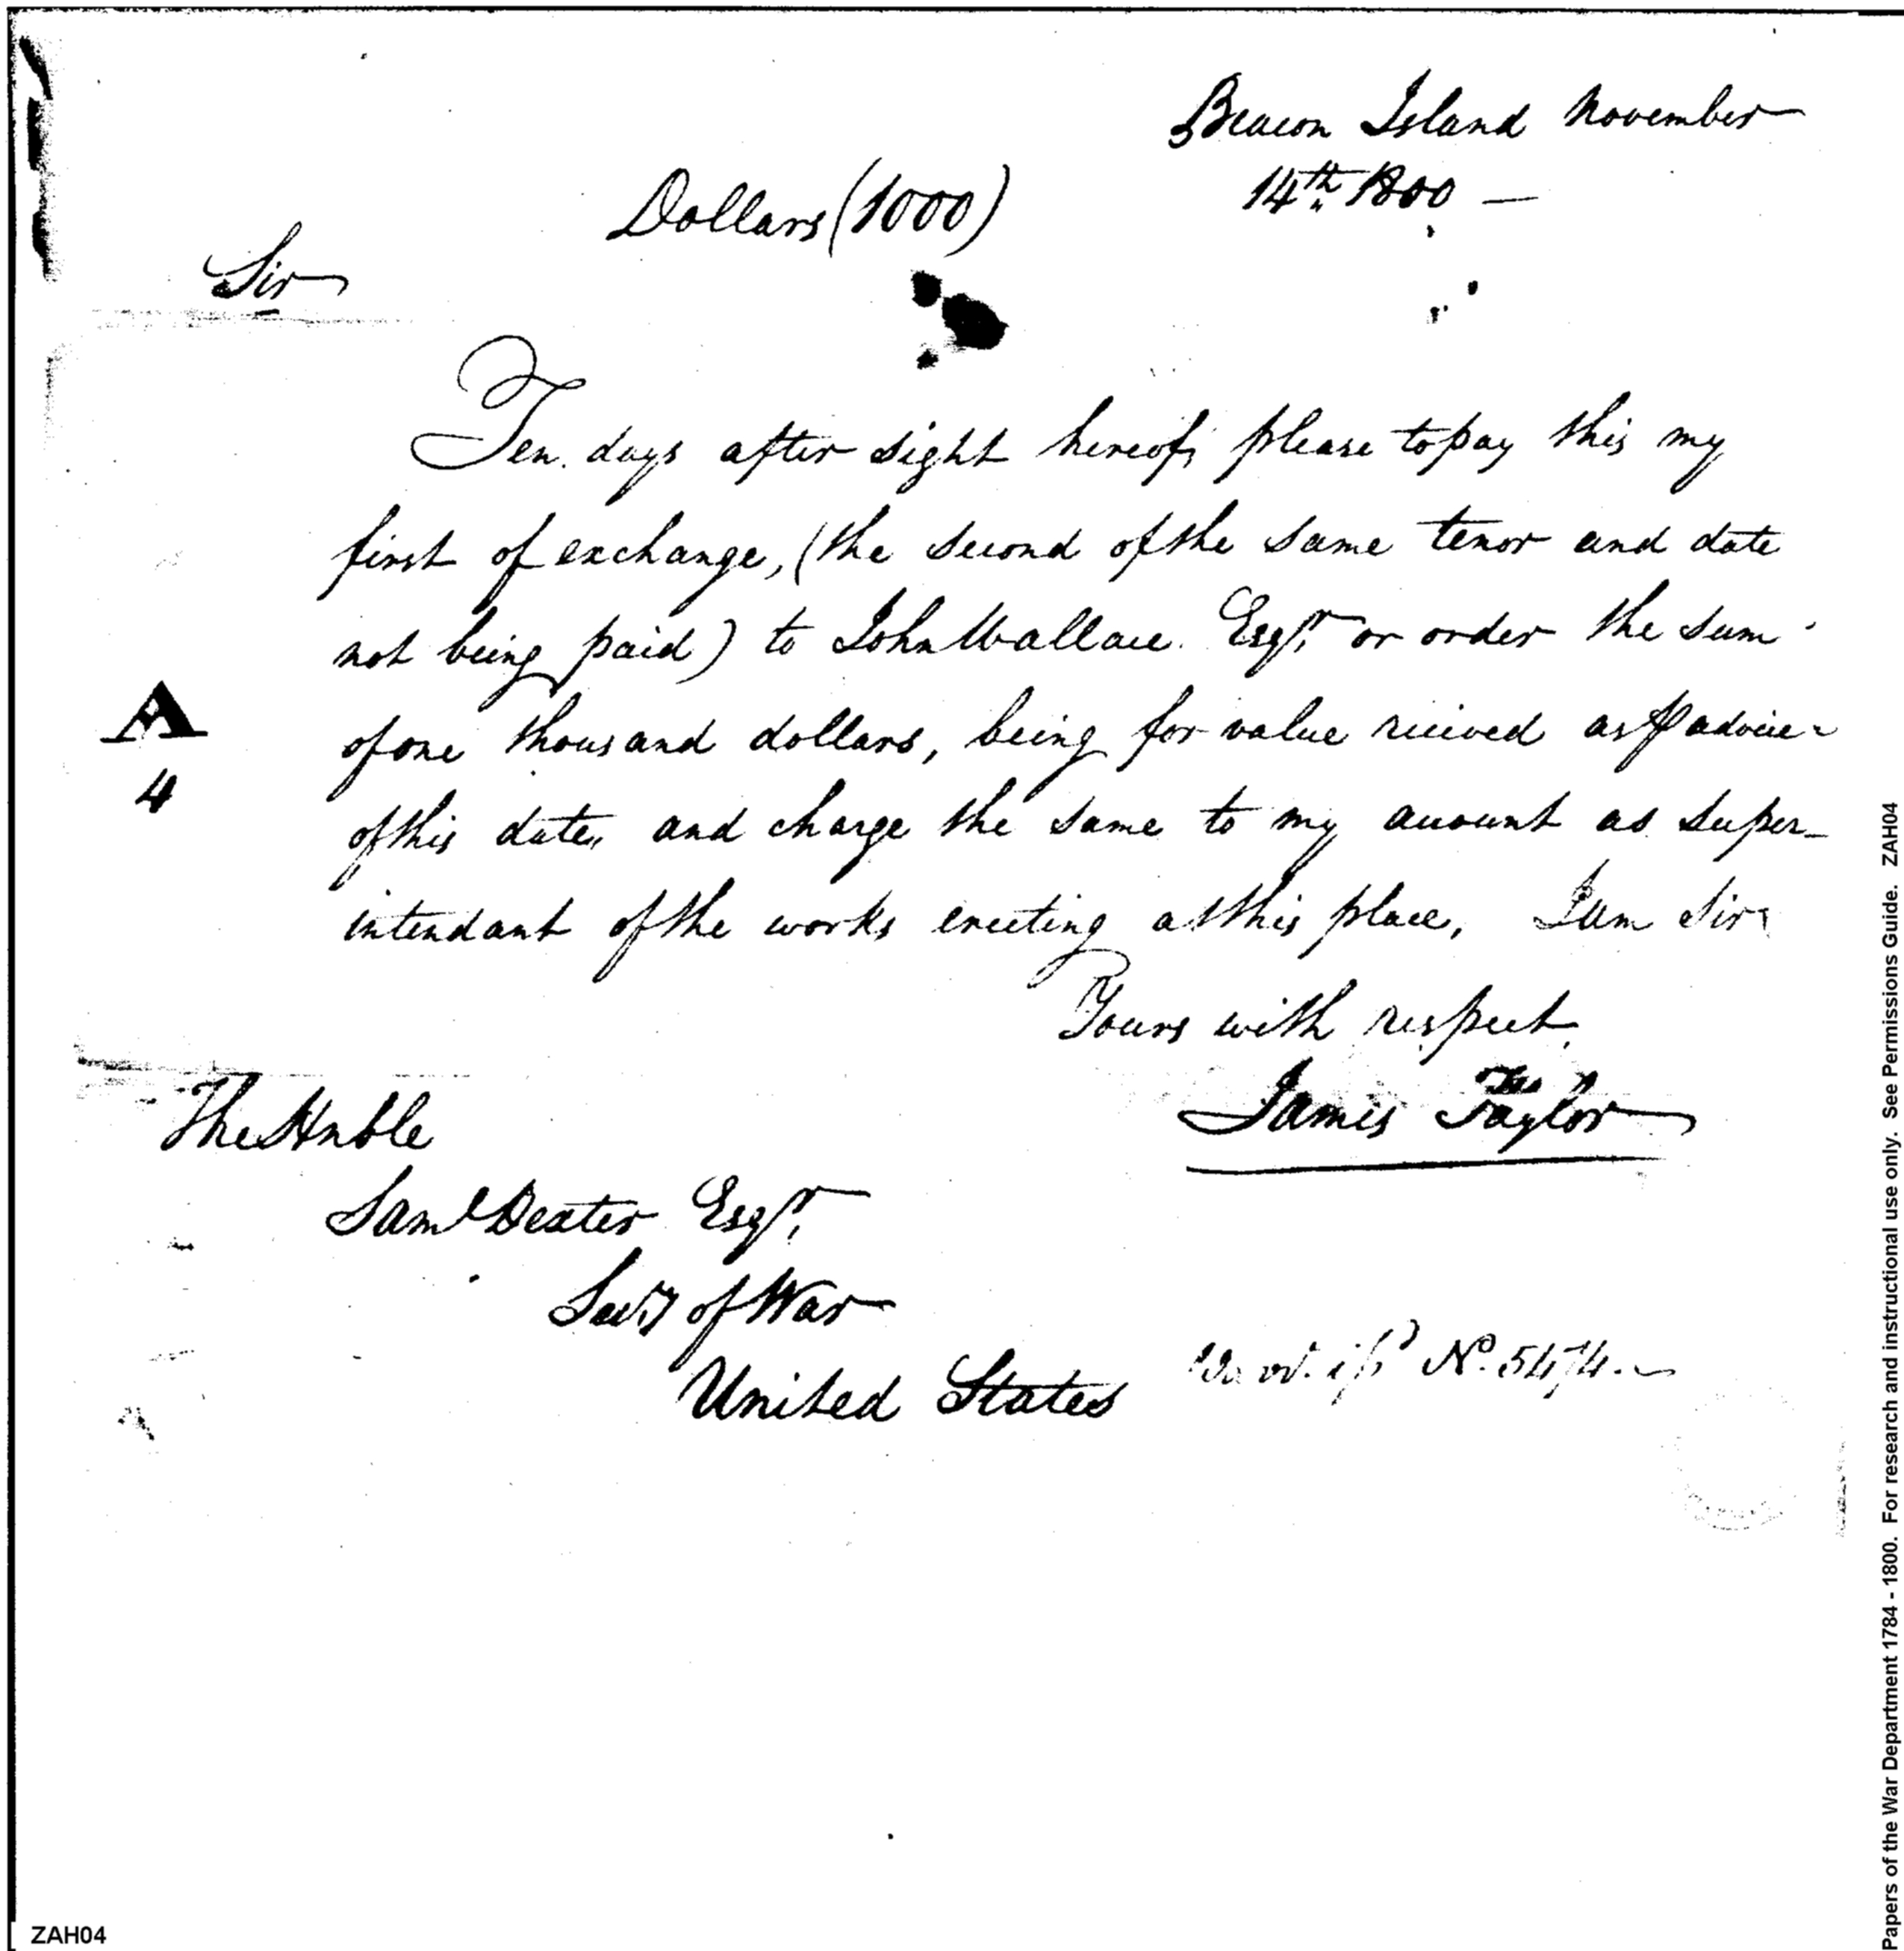 Beacon Island November
14th 1800 —
Dollars (1000)
Sir
Ten days after sight hereof, please to pay this my
first of exchange, (the second of the same tenor and date
not being paid) to John Wallace Esqr. or order the sum
of one thousand dollars, being for value recieved as ⅌ advice
of this date, and charge the same to my account as super-
intendant of the works erecting at this place, I am Sir
Yours with respect
James Taylor
The Hnble
Saml Dexter Esqr.
Secty of War
United States
No. 5474.
A
4
ZAH04
Papers of the War Department 1784 - 1800. For research and instructional use only. See Permissions Guide. ZAH04